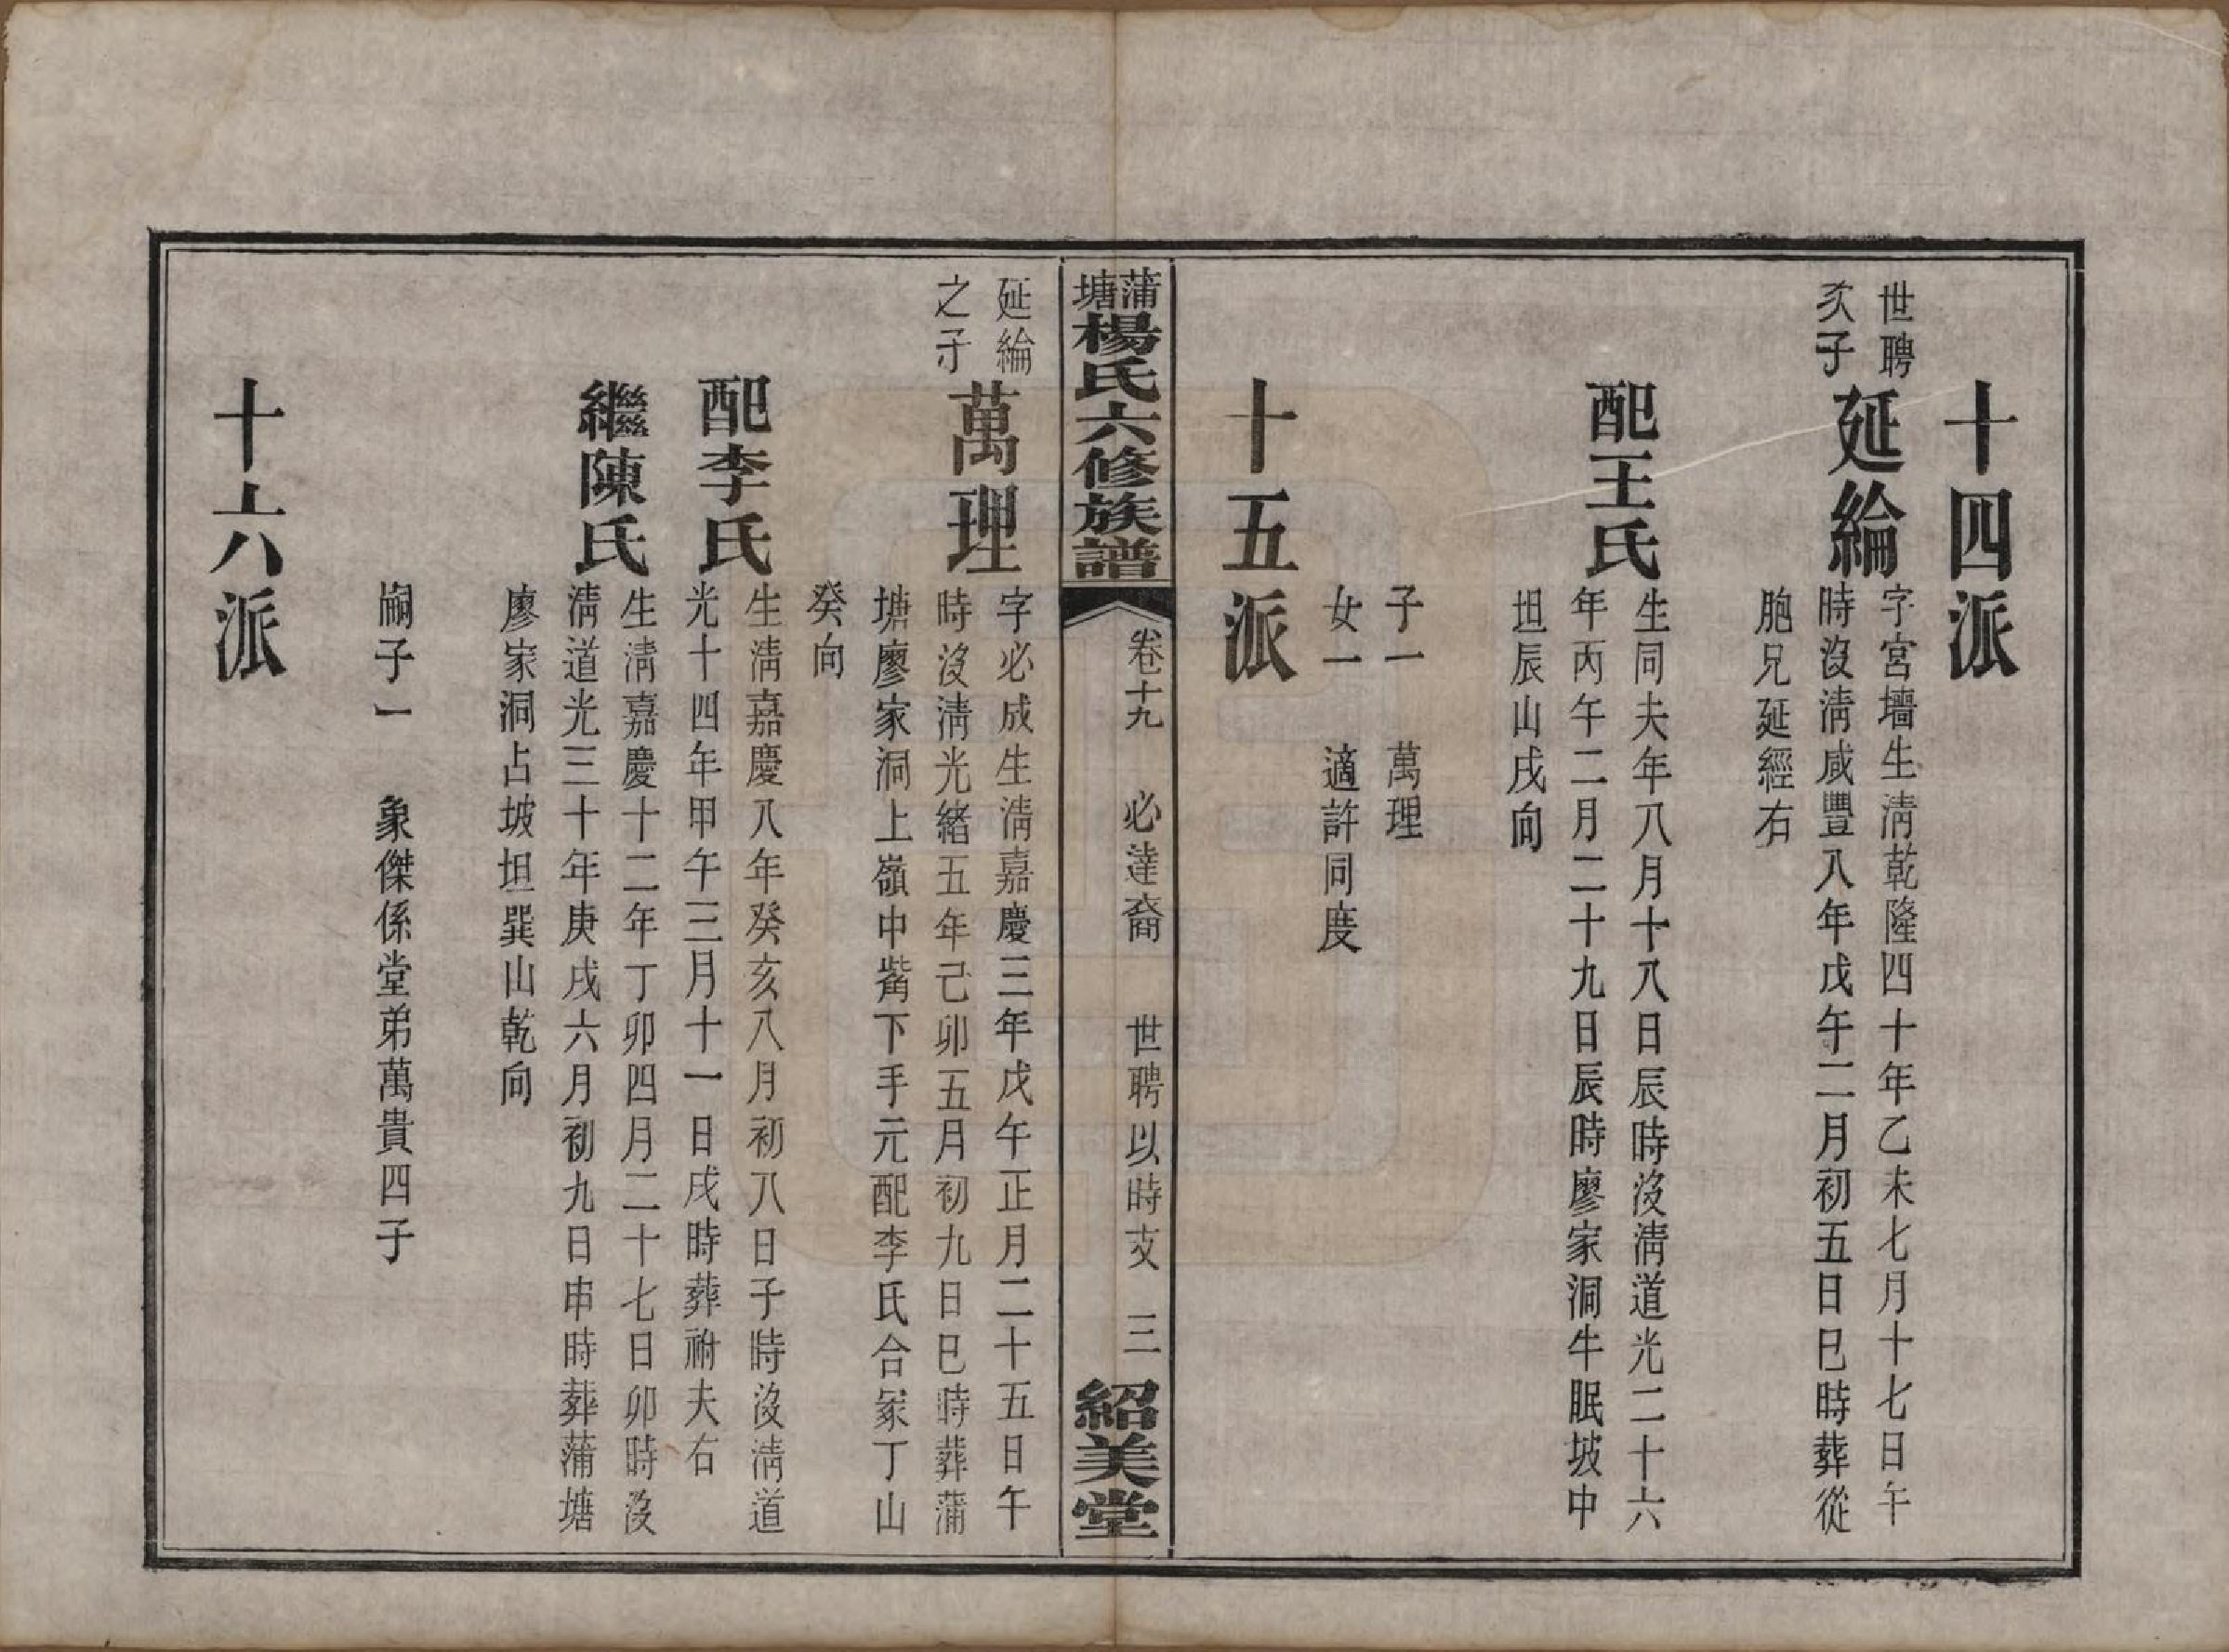 十四派
世聘
亥子
延綸
字宮墻生淸乾隆四十年乙未七月十七日午
時沒淸咸豐八年戊午二月初五日巳時葬從
胞兄延經右
配王氏
生同夫年八月十八日辰時沒淸道光二十六
年丙午二月二十九日辰時廖家洞牛眠坡中
坦辰山戌向
子一　萬理
女一　適許同度
十五派
蒲塘楊氏六修族譜
卷十九　必達裔　世聘以時支　三
紹美堂
延綸
之子
萬理
字必成生淸嘉慶三年戊午正月二十五日午
時沒淸光緒五年己卯五月初九日巳時葬蒲
塘廖家洞上嶺中嘴下手元配李氏合冢丁山
癸向
配李氏
生淸嘉慶八年癸亥八月初八日子時沒淸道
光十四年甲午三月十一日戌時葬祔夫右
繼陳氏
生淸嘉慶十二年丁卯四月二十七日卯時沒
淸道光三十年庚戌六月初九日申時葬蒲塘
廖家洞占坡坦巽山乾向
嗣子一　象傑係堂弟萬貴四子
十六派